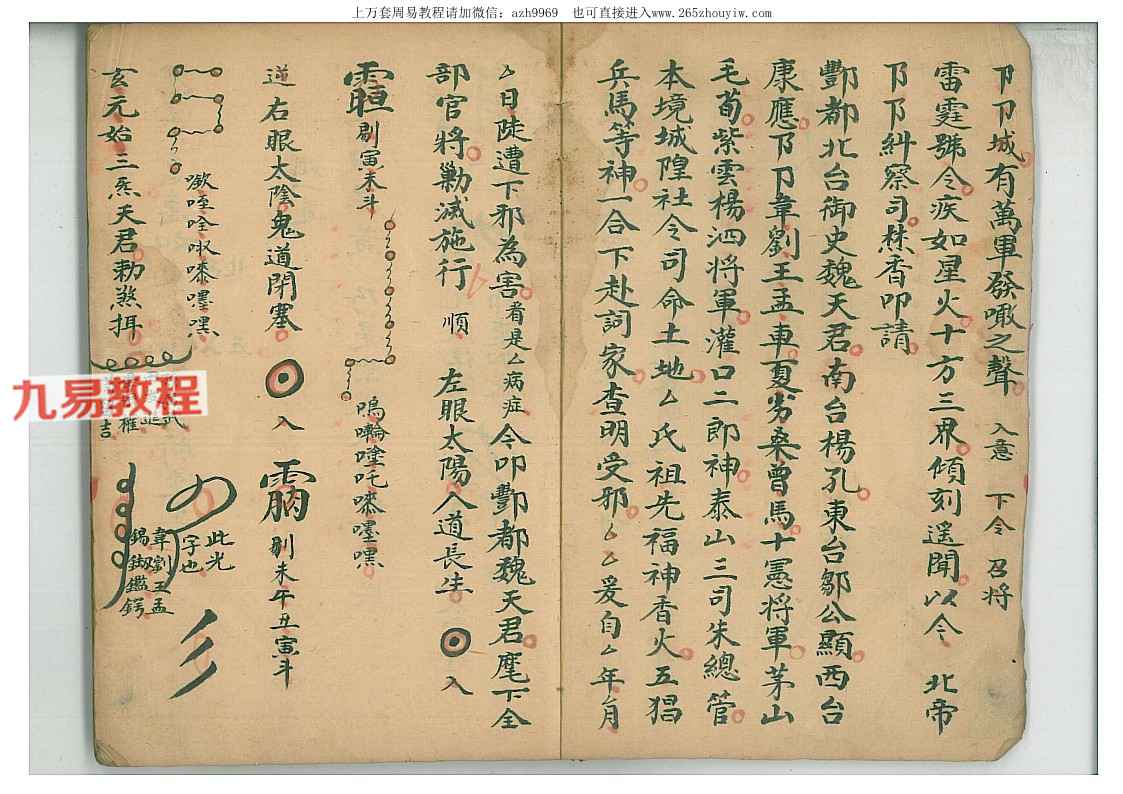 上万套周易教程请加微信：azh9969　也可直接进入www.265zhouyiw.com
卩卩城有萬軍發噉之聲 入意 下令 召将
雷霆號令疾如星火十方三界傾刻遥聞以令 北帝
卩卩糾察司焚香叩請
酆都北台御史魏天君南台楊孔東台鄒公顯西台
康應卩卩韋劉王孟車夏劣桑曾馬十憲將軍茅山
毛荀紫雲楊泗将軍灌口二郎神泰山三司朱總管
本境城隍社令司命土地厶氏祖先福神香火五猖
兵馬等神一合下赴詞家查明受邪厶厶爰自厶年月
厶日陡遭下邪為害看是厶病症今叩酆都魏天君麾下全
部官將勦滅施行 順 左眼太陽人道長生 入
剔寅未斗
嗚 塗吒嗏嚜嘿
逆右眼太陰鬼道閉塞 入
剔未午丑寅斗
咥唫呶嗏嚜嘿
此光
字也
玄元始三炁天君勅煞挕
韋劉王孟
九易教程